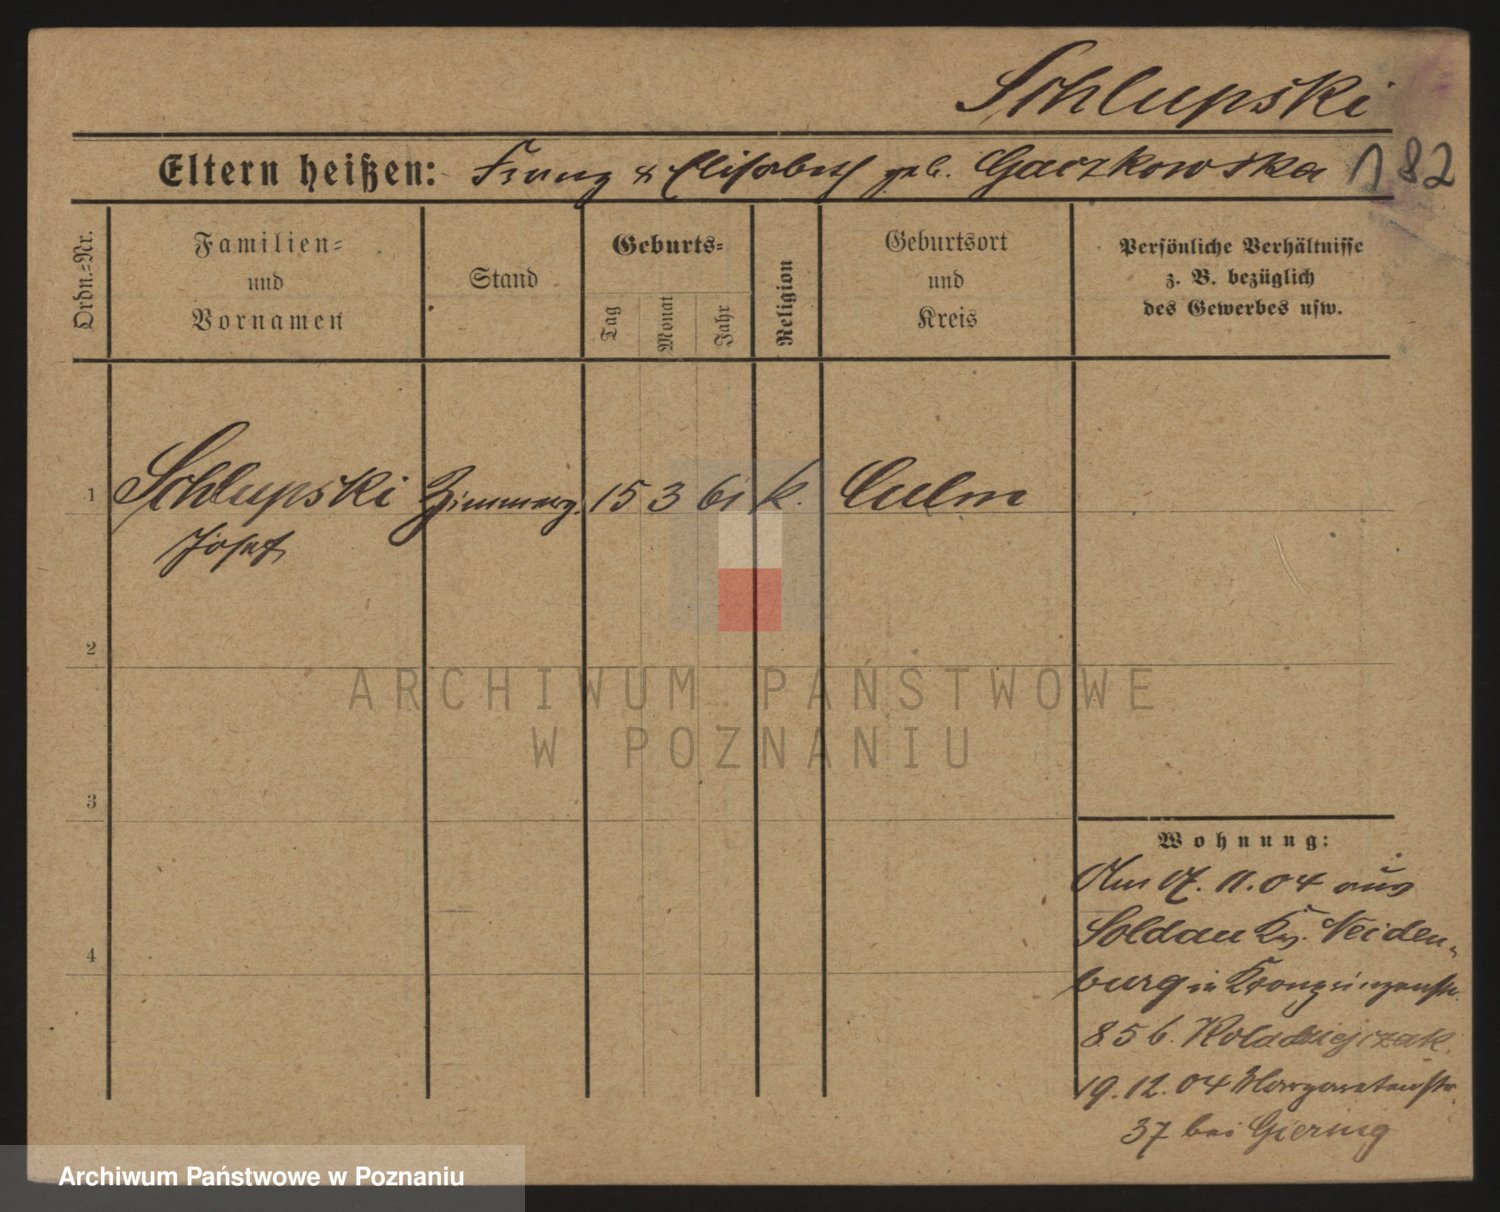 Schlupski
Eltern heißen: Franz & Elisabeth geb. Gaczkowska 182
Ordn.=Nr.
Familien=
und
Vornamen
Stand
Geburts=
Tag
Monat
Jahr
Religion
Geburtsort
und
Kreis
Persönliche Verhältnisse
z. B. bezüglich
des Gewerbes usw.
1 Schlupski Zimmerg. 15 3 61 k. Culm
Josef
2
ARCHIWUM PAŃSTWOWE
W POZNANIU
3
Wohnung:
Am 17. 11. 04 aus
Soldau Kr. Neiden-
4
burg in Kronprinzenstr.
85 b.
19. 12. 04 Margaretenstr.
37 bei Giering
Archiwum Państwowe w Poznaniu